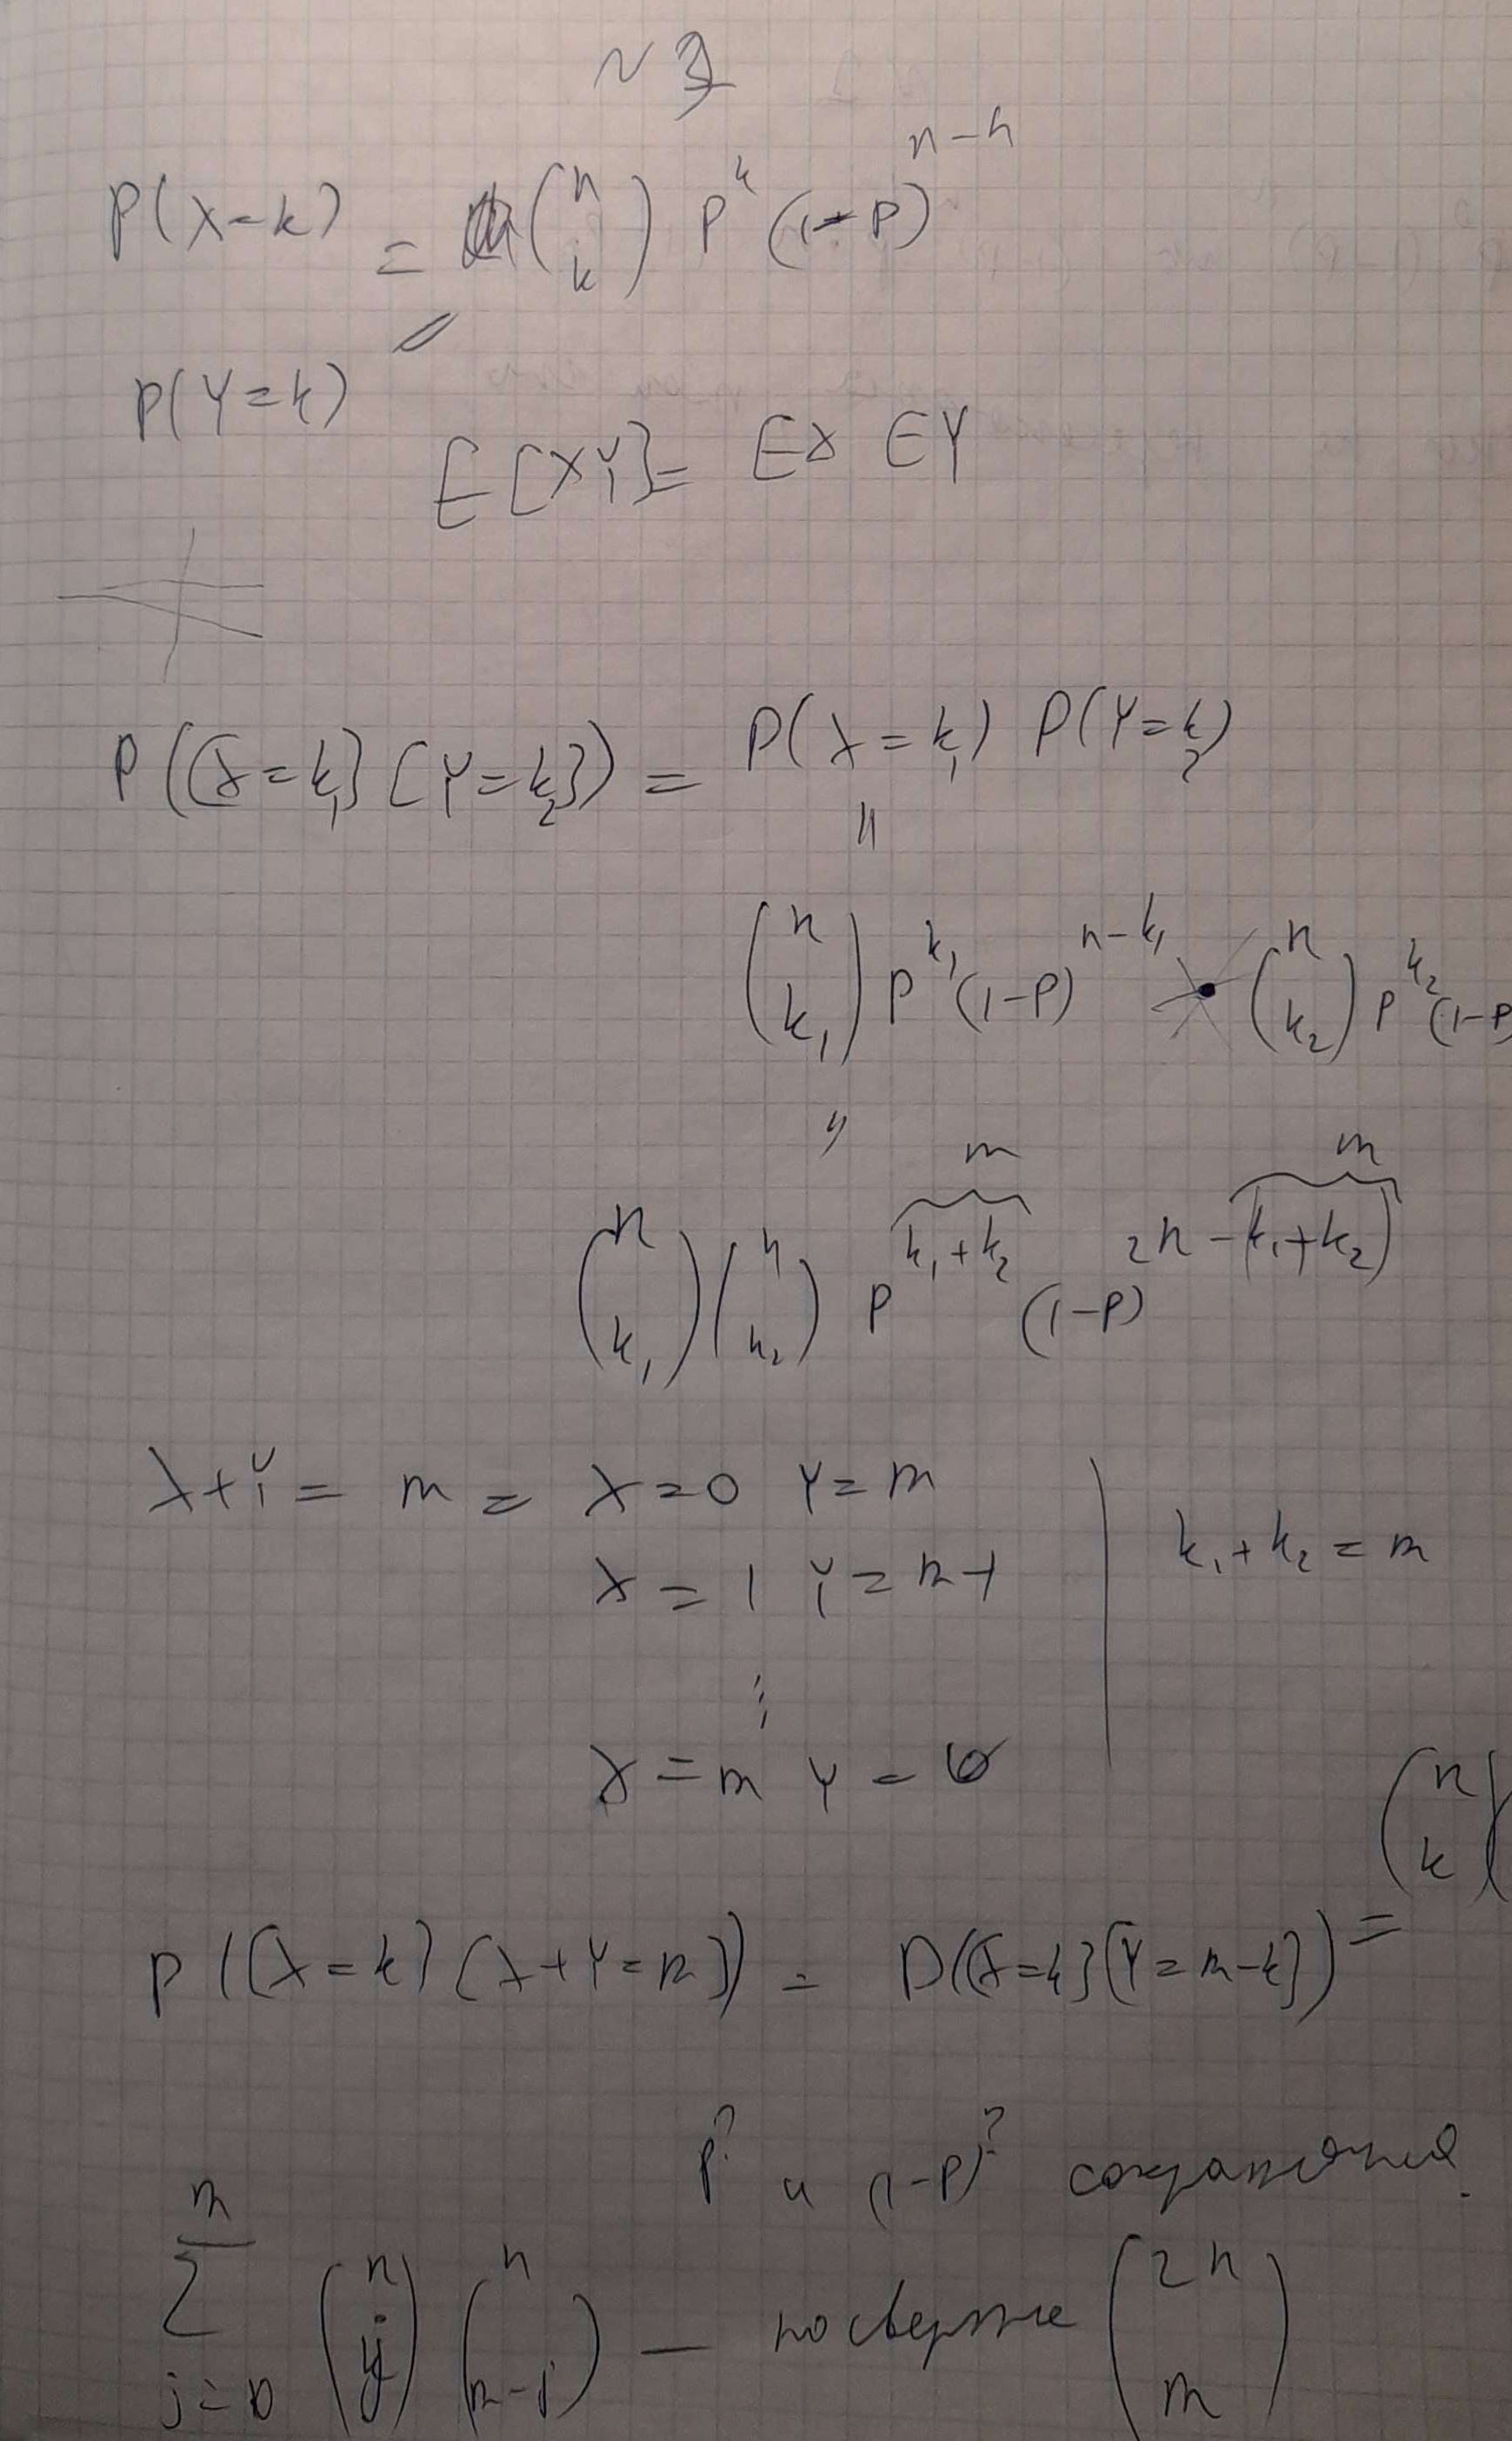 № 3
P(X=k) = (n k) p^k (1-p)^{n-k}
P(Y=k)
E[XY] = EX EY
P({X=k₁}{Y=k₂}) = P(X=k₁) P(Y=k₂)
=
(n k₁) p^{k₁} (1-p)^{n-k₁} · (n k₂) p^{k₂} (1-p
=
m m
(n k₁)(n k₂) p^{k₁+k₂} (1-p)^{2n-(k₁+k₂)}
X+Y = m = X=0 Y=m
X=1 Y=m-1 k₁+k₂=m
⋮
X=m Y=0
(n k)(
P({X=k}{X+Y=m}) = P({X=k}{Y=m-k}) =
p^? и (1-p)^? сокращаются.
∑_{j=0}^{m} (n j)(n m-j) — по свертке (2n m)